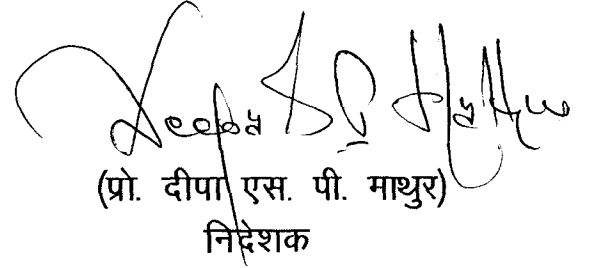 Deepa S P Mathur
(प्रो. दीपा एस. पी. माथुर)
निदेशक